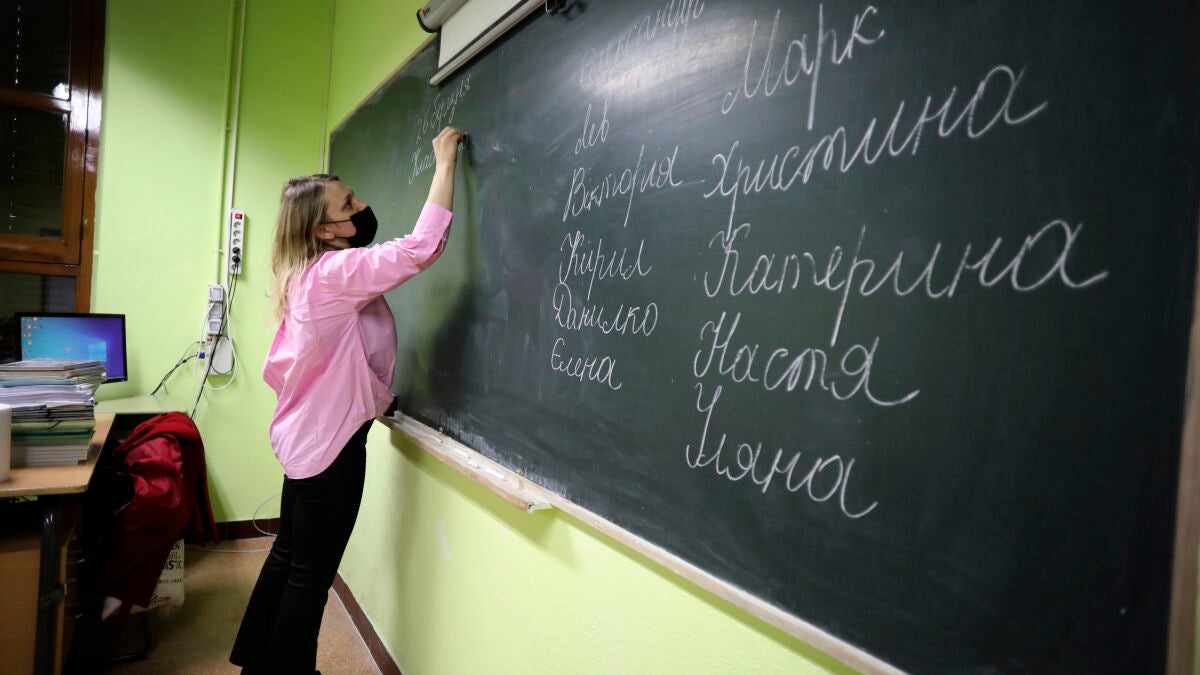 26 березня
Клас
Олександр
Лев
Вікторія
Кирил
Данилко
Єлена
Марк
Христина
Катерина
Настя
Уляна